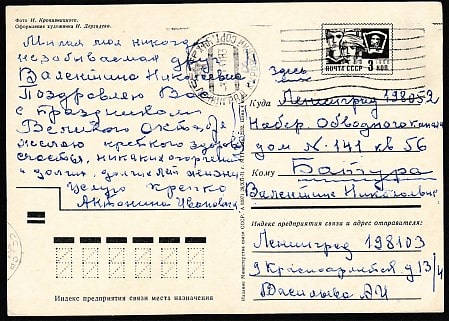 Фото И. Кропивницкого.
Оформление художника И. Дергилева.
Милая моя никогда
незабываемая
Валентина Николаевна
Поздравляю Вас
с праздником
Великого Октября
желаю крепкого здоровья
счастья, никаких огорчений
и долгих, долгих лет жизни
Целую крепко
Антонина Ивановна
ПОЧТА СССР 3 КОП
здесь
Куда Ленинград 198052
Набер Обводного канала
дом № 141 кв 56
Кому Батура
Валентине Николаевне
Индекс предприятия связи и адрес отправителя:
Ленинград 198103
9 Красноармейская д 13/4
Васильева А И
Индекс предприятия связи места назначения
Издание Министерства связи СССР.